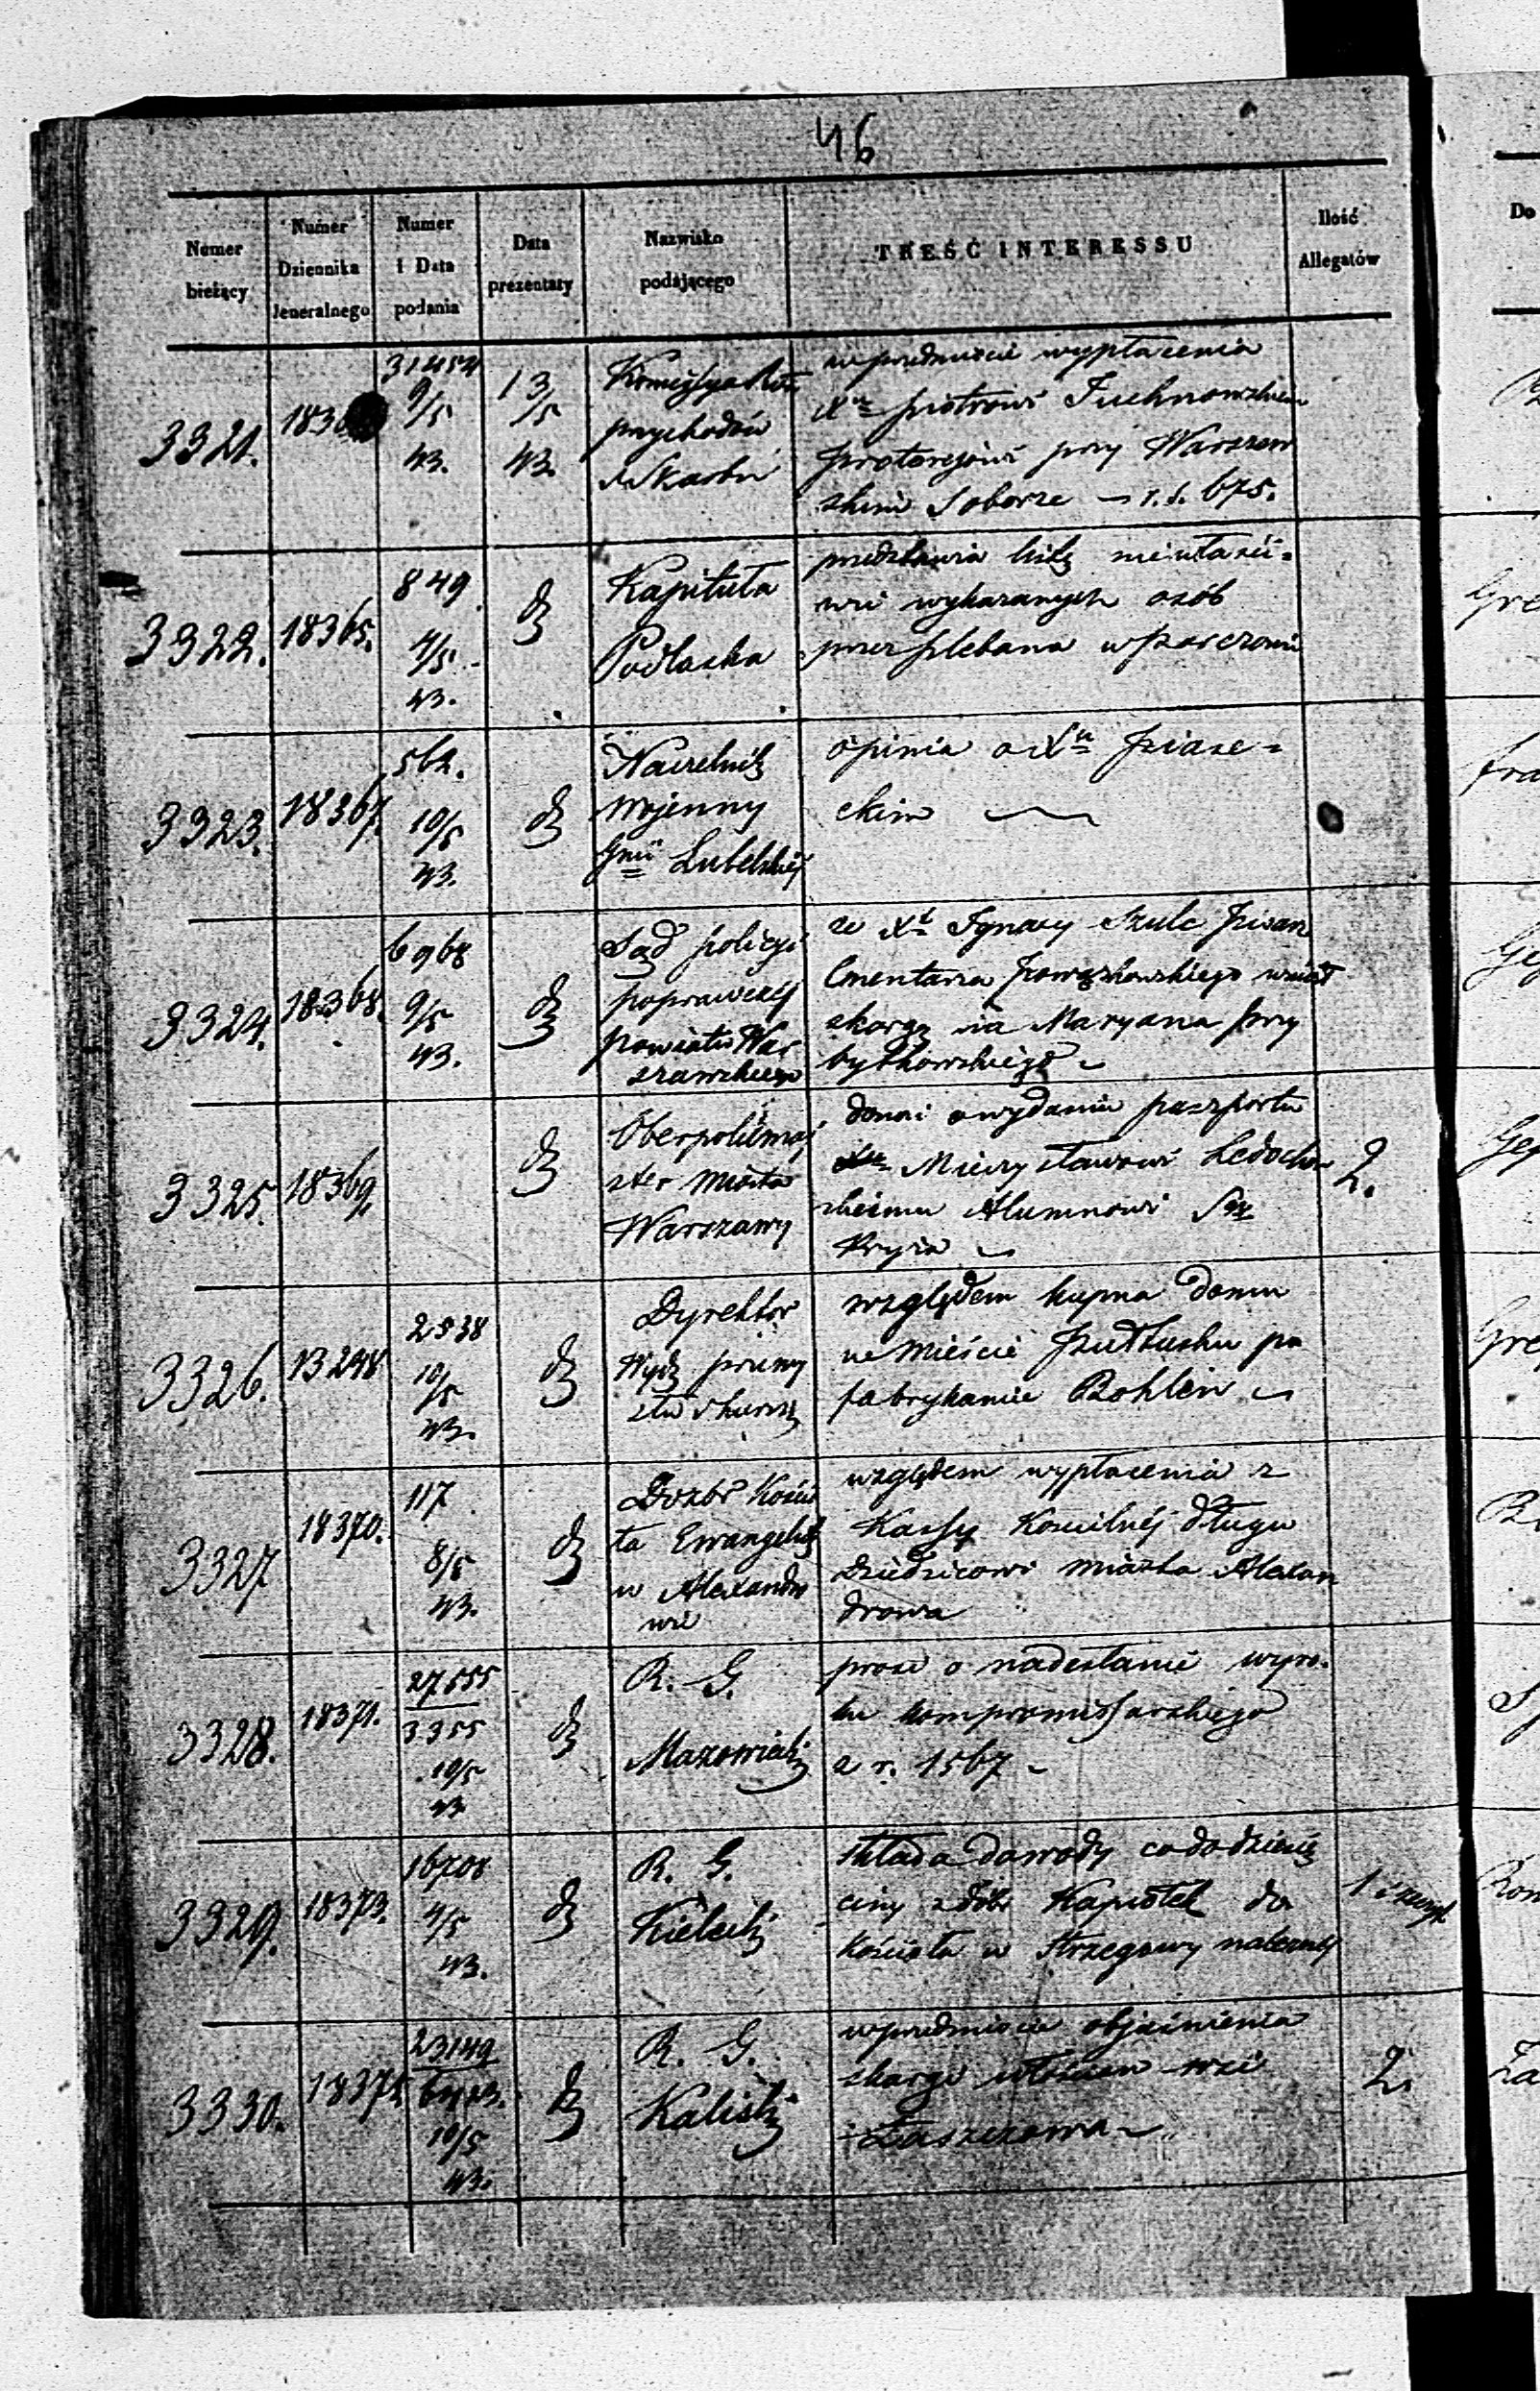 46
Numer bieżący
Numer Dziennika Jeneralnego
Numer i Data podania
Data prezentaty
Nazwisko podającego
TREŚĆ INTERESSU
Ilość Allegatów
Do
3321.
1836
31454
9/5
43.
13/5
43.
przychodów
i Skarbu
w przedmiocie wypłacenia
Piotrowi
przy Warszaw
skim Soborze – r. s. 675.
3322.
18365.
849
4/5
43.
Kapituła
Podlaska
przedstawia listę niewłaści=
wie wykazanych osób
przez plebana w Parczewie
3323.
18367.
562.
10/5
43.
Naczelnik
Wojenny
Gnii Lubelskiej
opinia o Xu Piase=
ckim
3324.
18368.
6968
9/5
43.
Sąd policyi
poprawczej
powiatu War
szawskiego
że Xd Ignacy Szulc Pisarz
Cmentarza Powązkowskiego wniósł
skargę na Maryana Przy
bytkowskiego
3325.
18369.
Oberpolicmaj
ster Miasta
Warszawy
donosi o wydaniu paszportu
Mieczysławowi Ledochow
skiemu Alumnowi
2.
3326.
13248
2538
10/5
43.
Dyrektor
Wydz. przemy
względem kupna domu
w mieście Pułtusku po
fabrykancie Bohlen
3327
18370.
117
8/5
43.
Dozór Kościo
ła Ewangelick
w Alexandro
wie
względem wypłacenia z
Kassy Kościelnej długu
Dziedzicowi miasta Alexan
drowa
3328.
18371.
27555
3355
10/5
43
R. G.
Mazowieck
prosi o nadesłanie wyro=
ku kompromissarskiego
z r. 1567
3329.
18373.
16708
4/5
43.
R. G.
Kieleck
składa dowody co do dziesię
ciny z dóbr Kapiołek do
Kościoła w Strzegowy należnej
3330.
1837
23149
10/5
43.
R. G.
Kalisk
w przedmiocie objaśnienia
skargi włościan wsi
Łaszczowa
2.